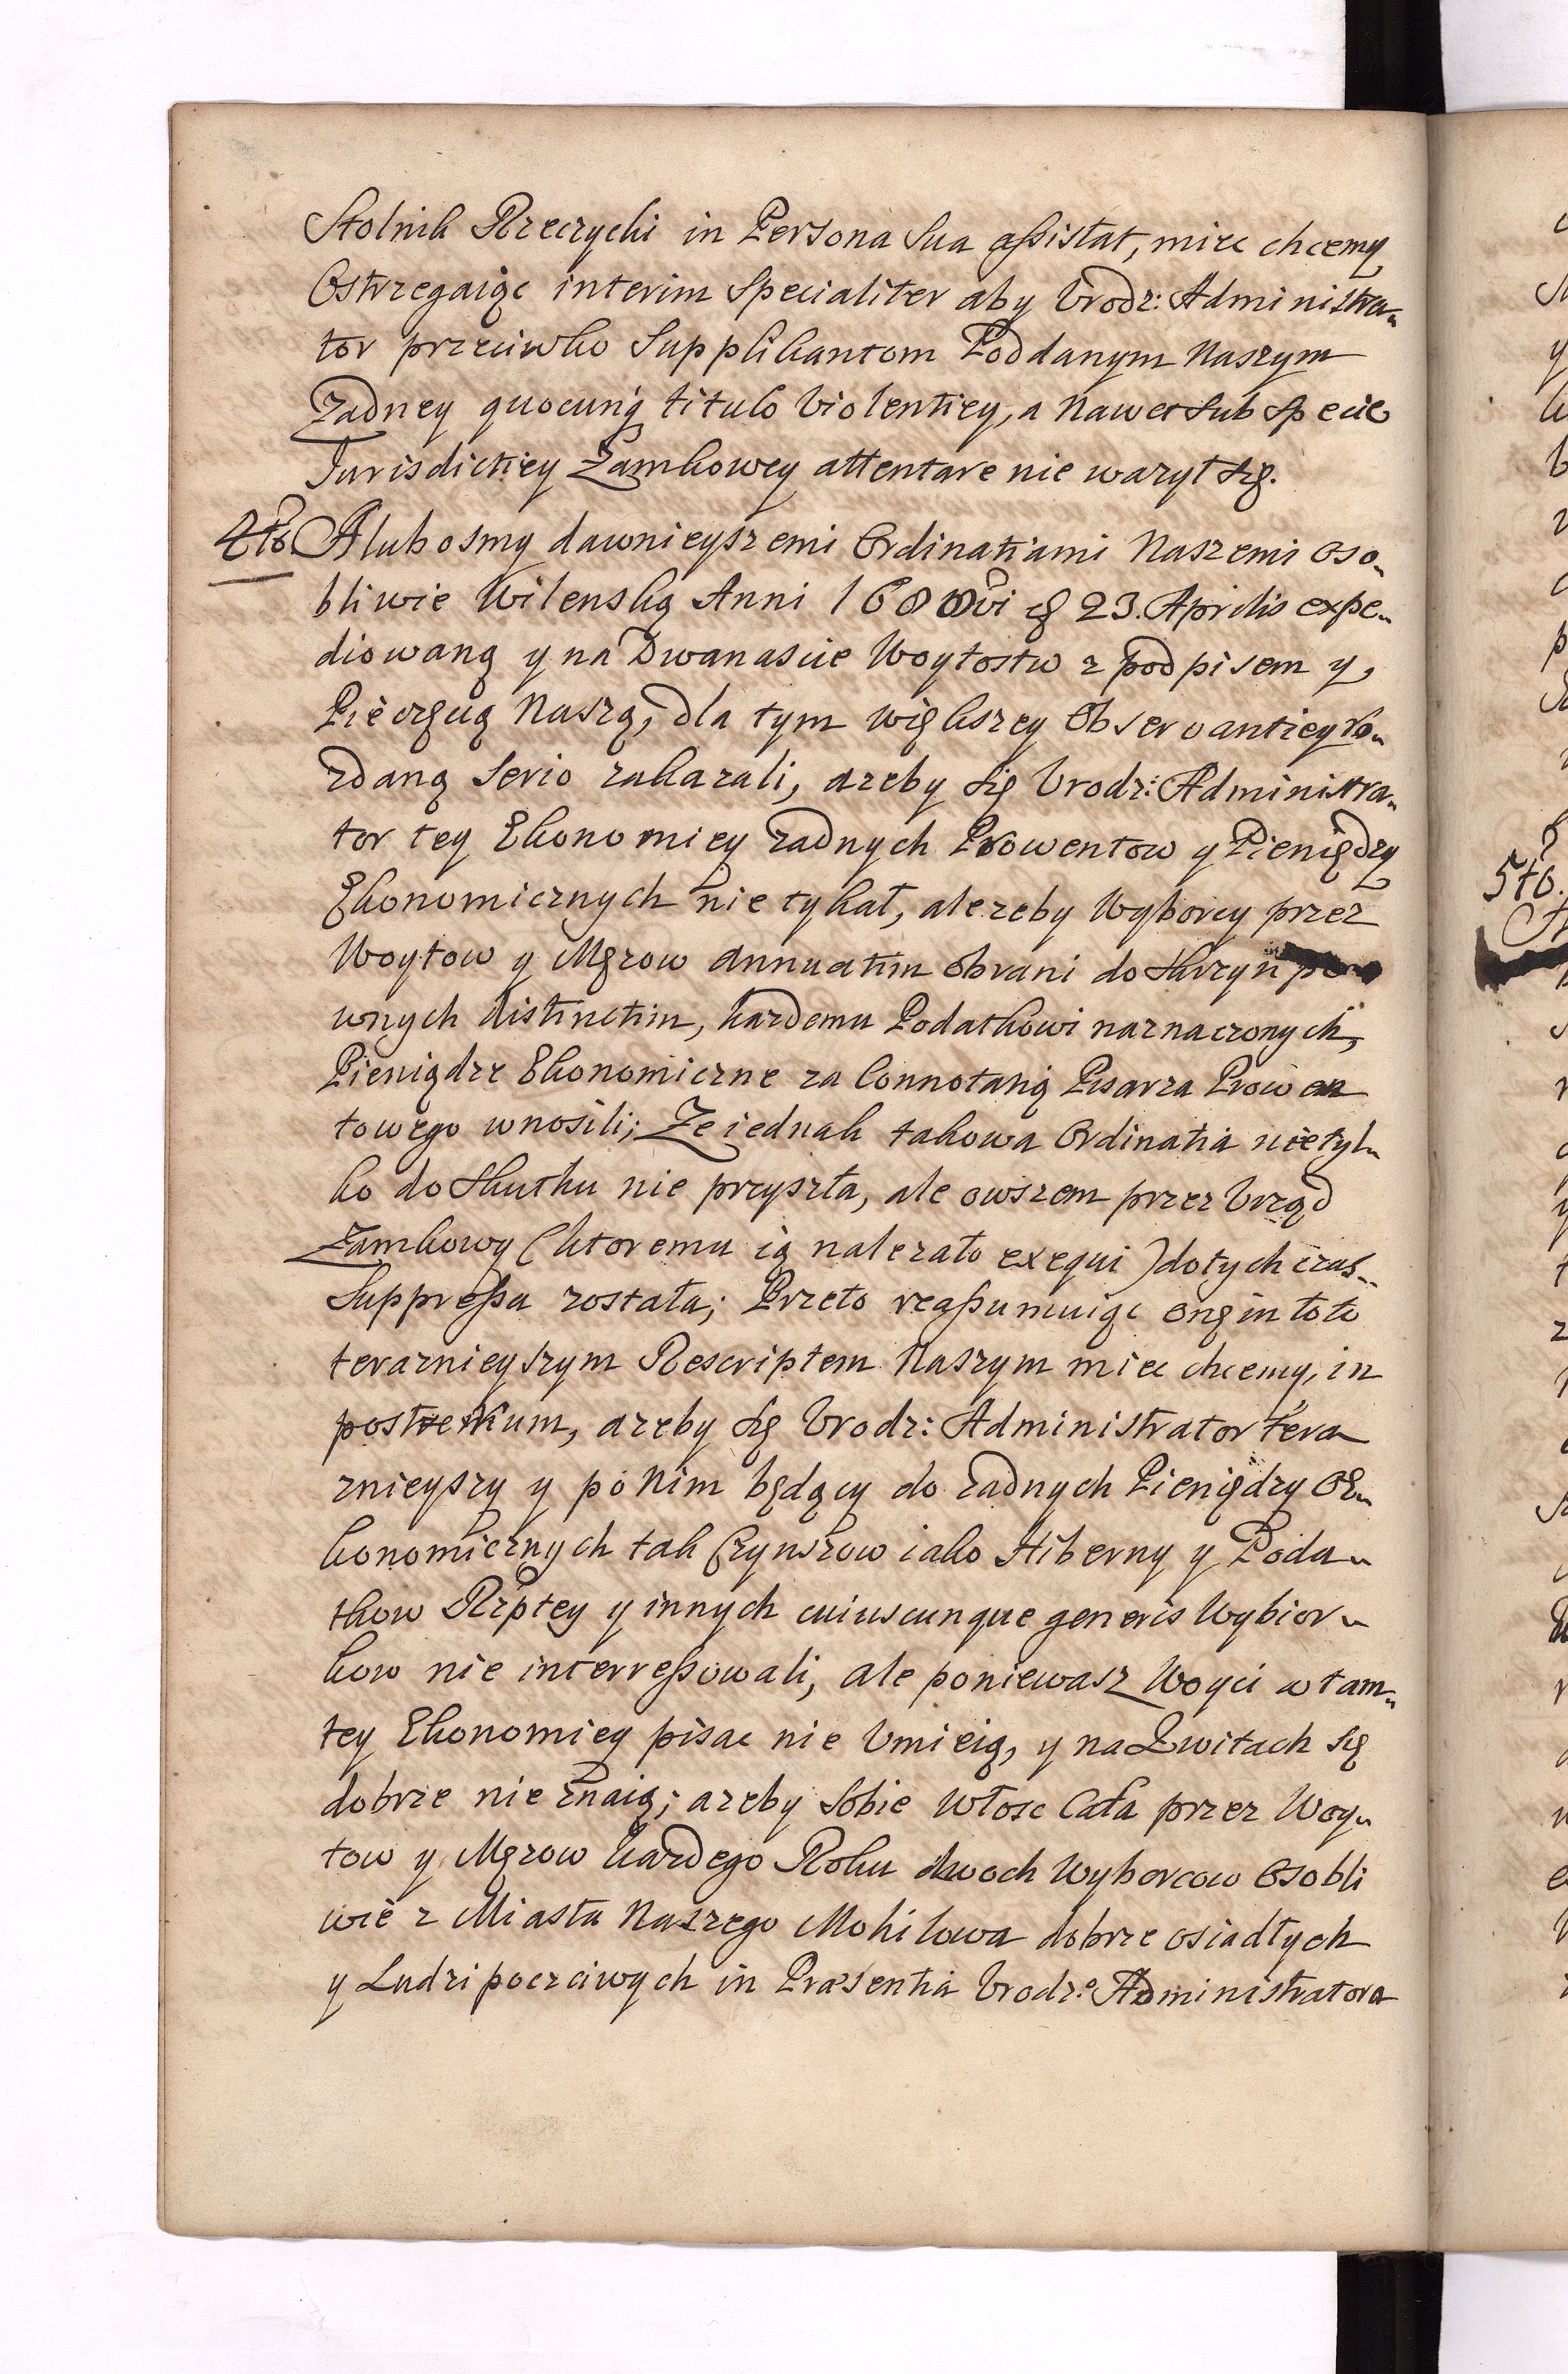 Stolnik Rzeczycki in Persona Sua assistat, miec chcemy
Ostrzegaiąc interim Specialiter aby Urodz: Administra-
tor przeciwko Supplikantom Poddanym Naszym
Zadney quocunq titulo Violentiey, a Nawet sub specie
Jurisdictiey Zamkowey attentare nie wazył się.
4to. A lubosmy dawnieyszemi Ordinatiami Naszemi oso-
bliwie Wilenską Anni 23. Aprilis expe-
diowaną y na Dwanascie Woytostw z podpisem y
Pieczęcią Naszą, dla tym większey Observantiey ro-
zdaną serio zakazali, azeby się Urodz: Administra-
tor tey Ekonomiey zadnych Prowentow y Pieniędzy
Ekonomicznych nie tykał, ale zeby Wyborcy przez
Woytow y Męzow annuatim obrani do Skrzyn pe-
wnych distinctim, kazdemu Podatkowi naznaczonych,
Pieniądze Ekonomiczne za Connotatią Pisarza Prowen
towego wnosili; Ze iednak takowa Ordinatia nietyl-
ko do Skutku nie przyszła, ale owszem przez Urząd
Zamkowy (ktoremu ią nalezało exequi) dotychczas
Suppressa została; Przeto reassumuiąc onę in toto
teraznieyszym Rescriptem Naszym miec chcemy, in
postremum, azeby się Urodz: Administrator tera
znieyszy y po Nim będący do zadnych Pieniędzy Ek-
konomicznych tak Czynszow iako Hiberny y Poda-
tkow Rzptey y innych cuiuscunque generis Wybior-
kow nie interressowali, ale poniewasz Woyci w tam-
tey Ekonomiey pisac nie Umieią, y na Kwitach się
dobrze nie znaią; azeby Sobie Włosc Cała przez Woy-
tow y Męzow kazdego Roku dwoch Wyborcow Osobli
wie z Miasta Naszego Mohilowa dobrze osiadłych
y Ludzi poczciwych in Præsentia Urodz: Administratora
5to.